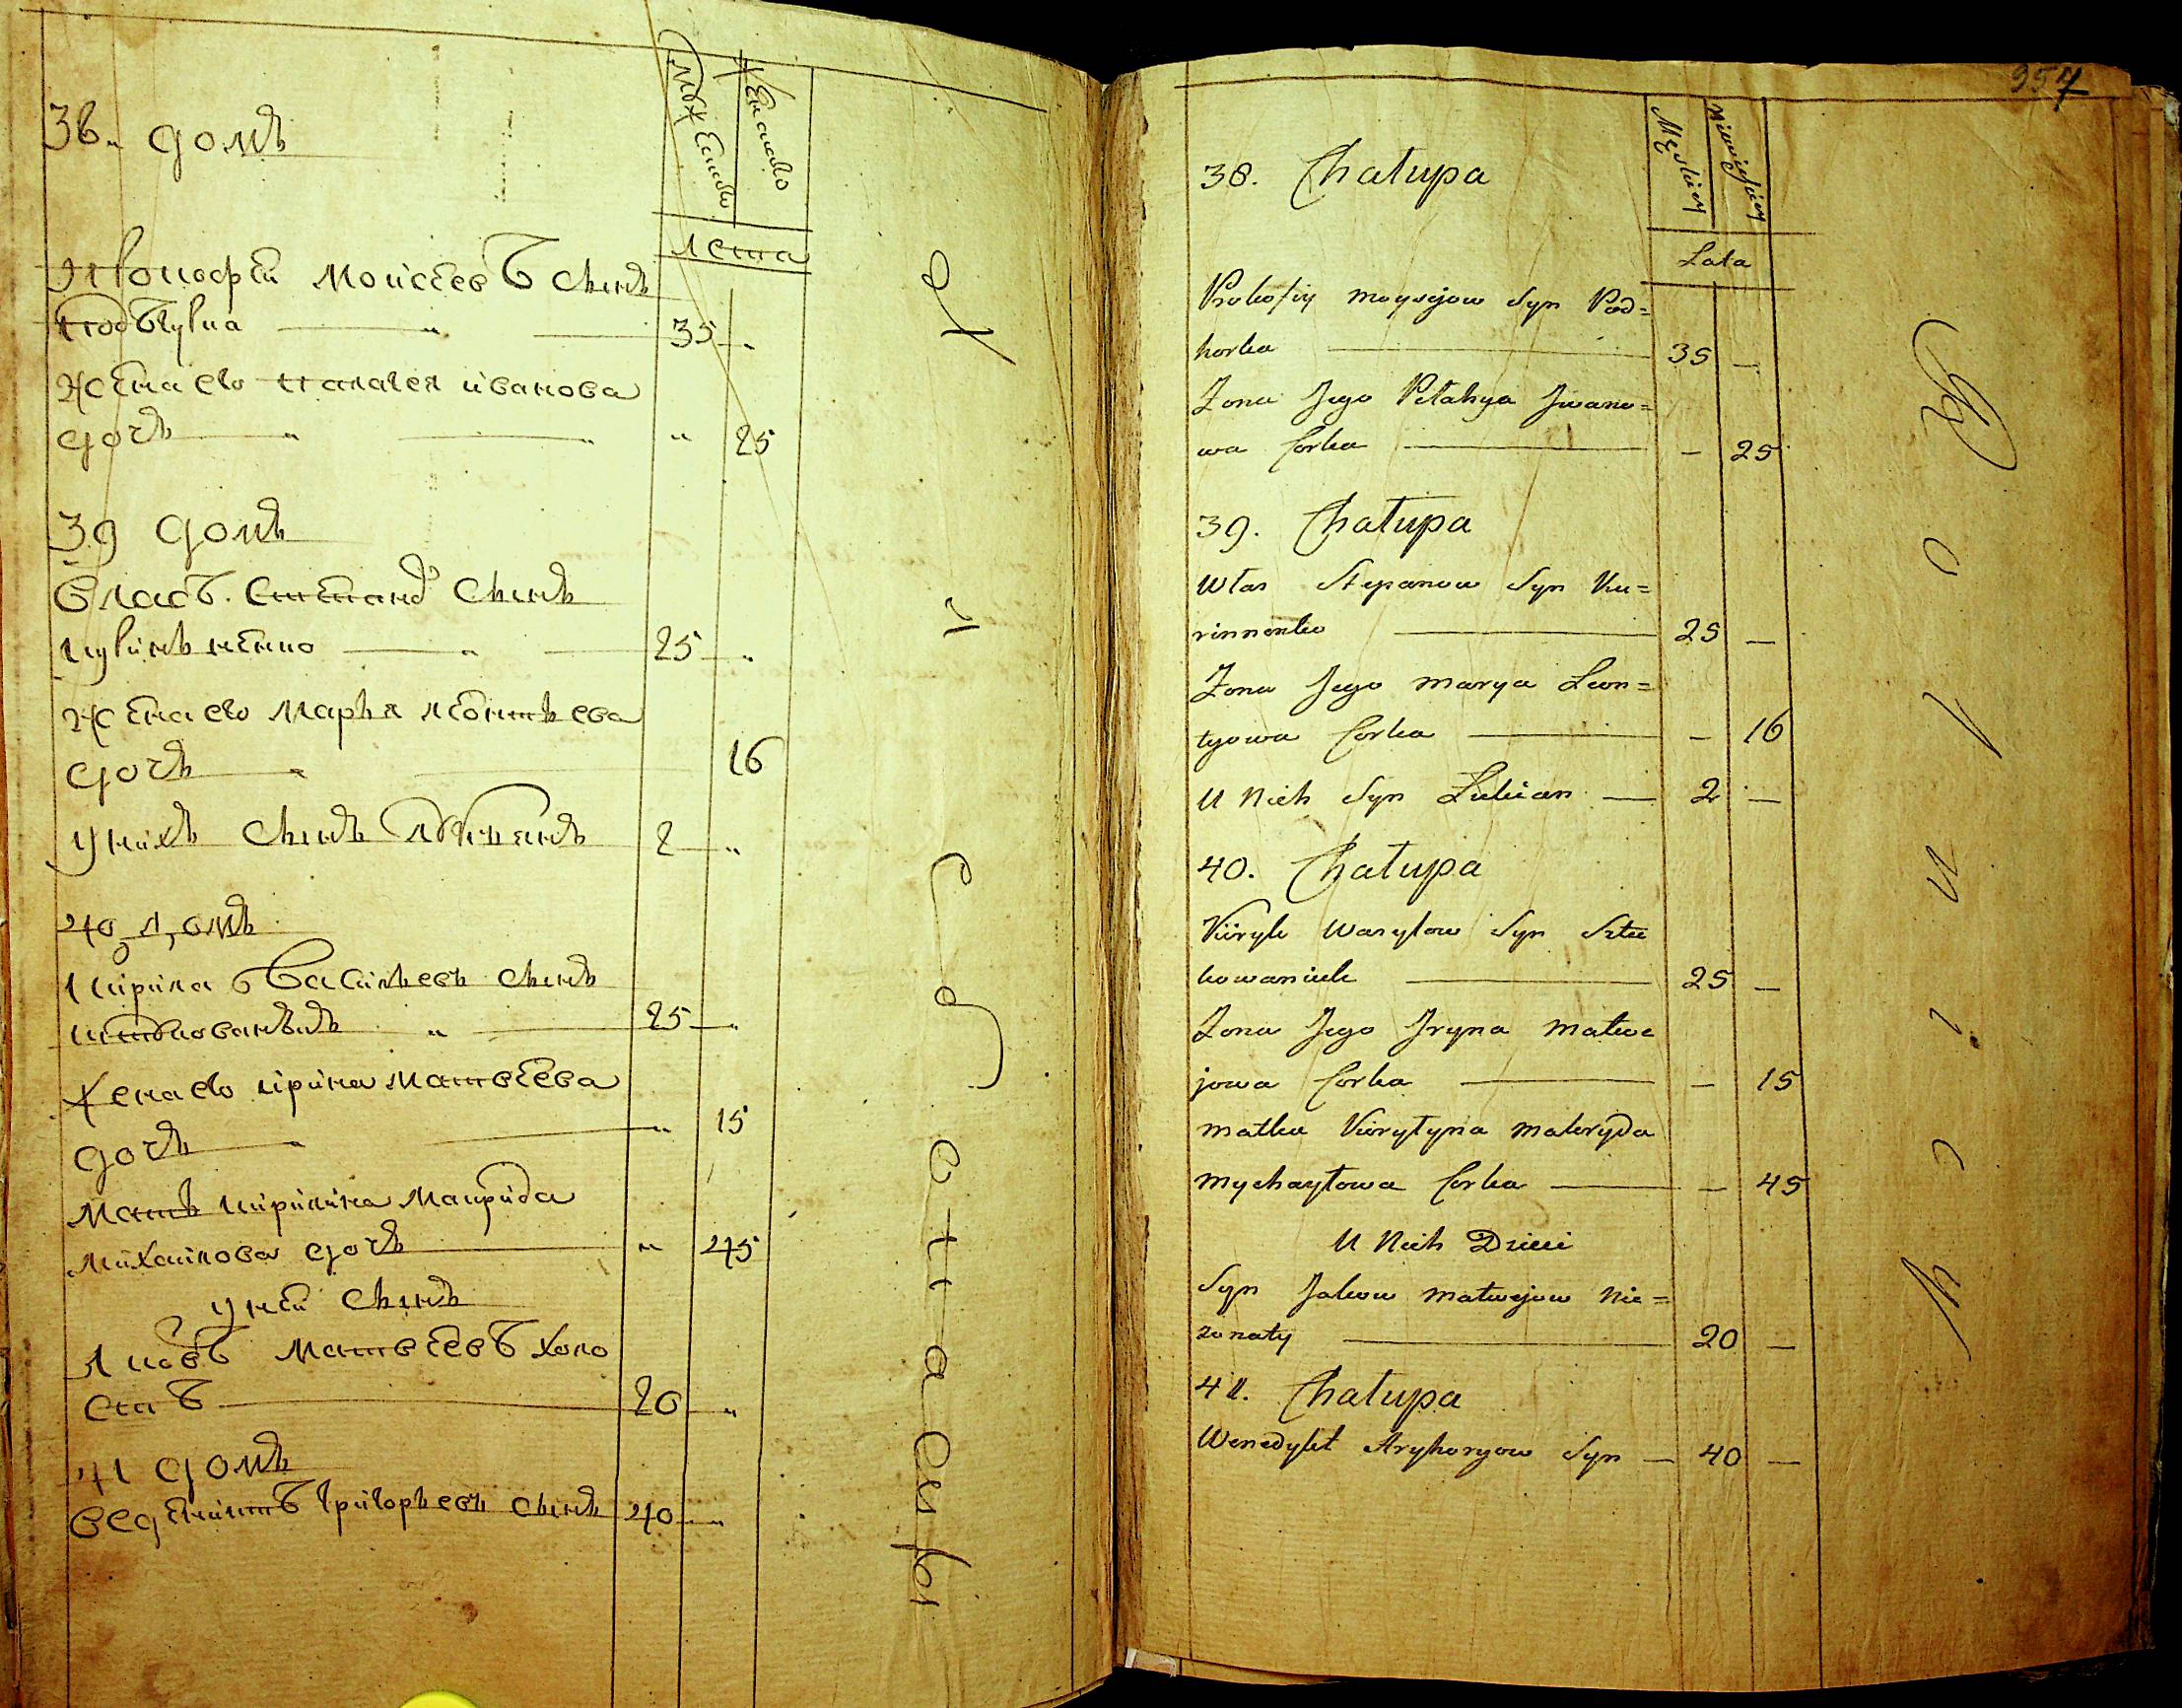 38. домъ
Мужеска
Женска
лета
Прокофей Моисеевъ сынъ
Подгурка 35 "
Жена его Палагея иванова
дочь " 25
39 домъ
Власъ Степановъ сынъ
куриньненко 25 "
Жена его Марья леонтьева
дочь 16
У нихъ сынъ Лукьянъ 2 "
40 домъ
кирила Васильевъ сынъ
25 "
Жена его ирина Матвеева
дочь " 15
Мать кирилина Маврида
Михаилова дочь " 45
У ней сынъ
Яковъ Матвеевъ холо
стъ 20 "
41 домъ
Веденихтъ григорьевъ сынъ 40 "
357
38. Chałupa
Męskiey
Lata
Prokofiy Moysejow Syn Pod=
horka 35 —
Zona Jego Pelahya Jwano=
wa Corka — 25
39. Chałupa
Włas Stepanow Syn Ku=
rinnenko 25 —
Zona Jego Marya Leon=
tyowa Corka — 16
U Nich Syn Lukian — 2 —
40. Chałupa
Kiryk Wasylow Syn Sztu
kowaniuk 25 —
Zona Jego Jryna Matwe
jowa Corka — 15
Matka Kiryłyna Makryda
Mychayłowa Corka — 45
U Nich Dzieci
Syn Jakow Matwejow Nie=
zonaty 20 —
41. Chałupa
Wenedykt Hryhoryow Syn — 40 —